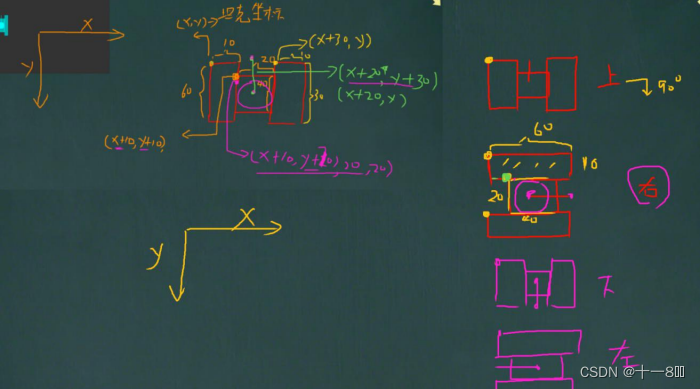 (x,y)→坦克坐标
X
10
(x+30,y)
20
10
Y
60
40
30
(x+20,y+30)
(x+20,y)
(x+10,y+10)
(x+10,y+10,20,20)
X
Y
上
90°
60
10
20
40
右
下
左
CSDN @十一8